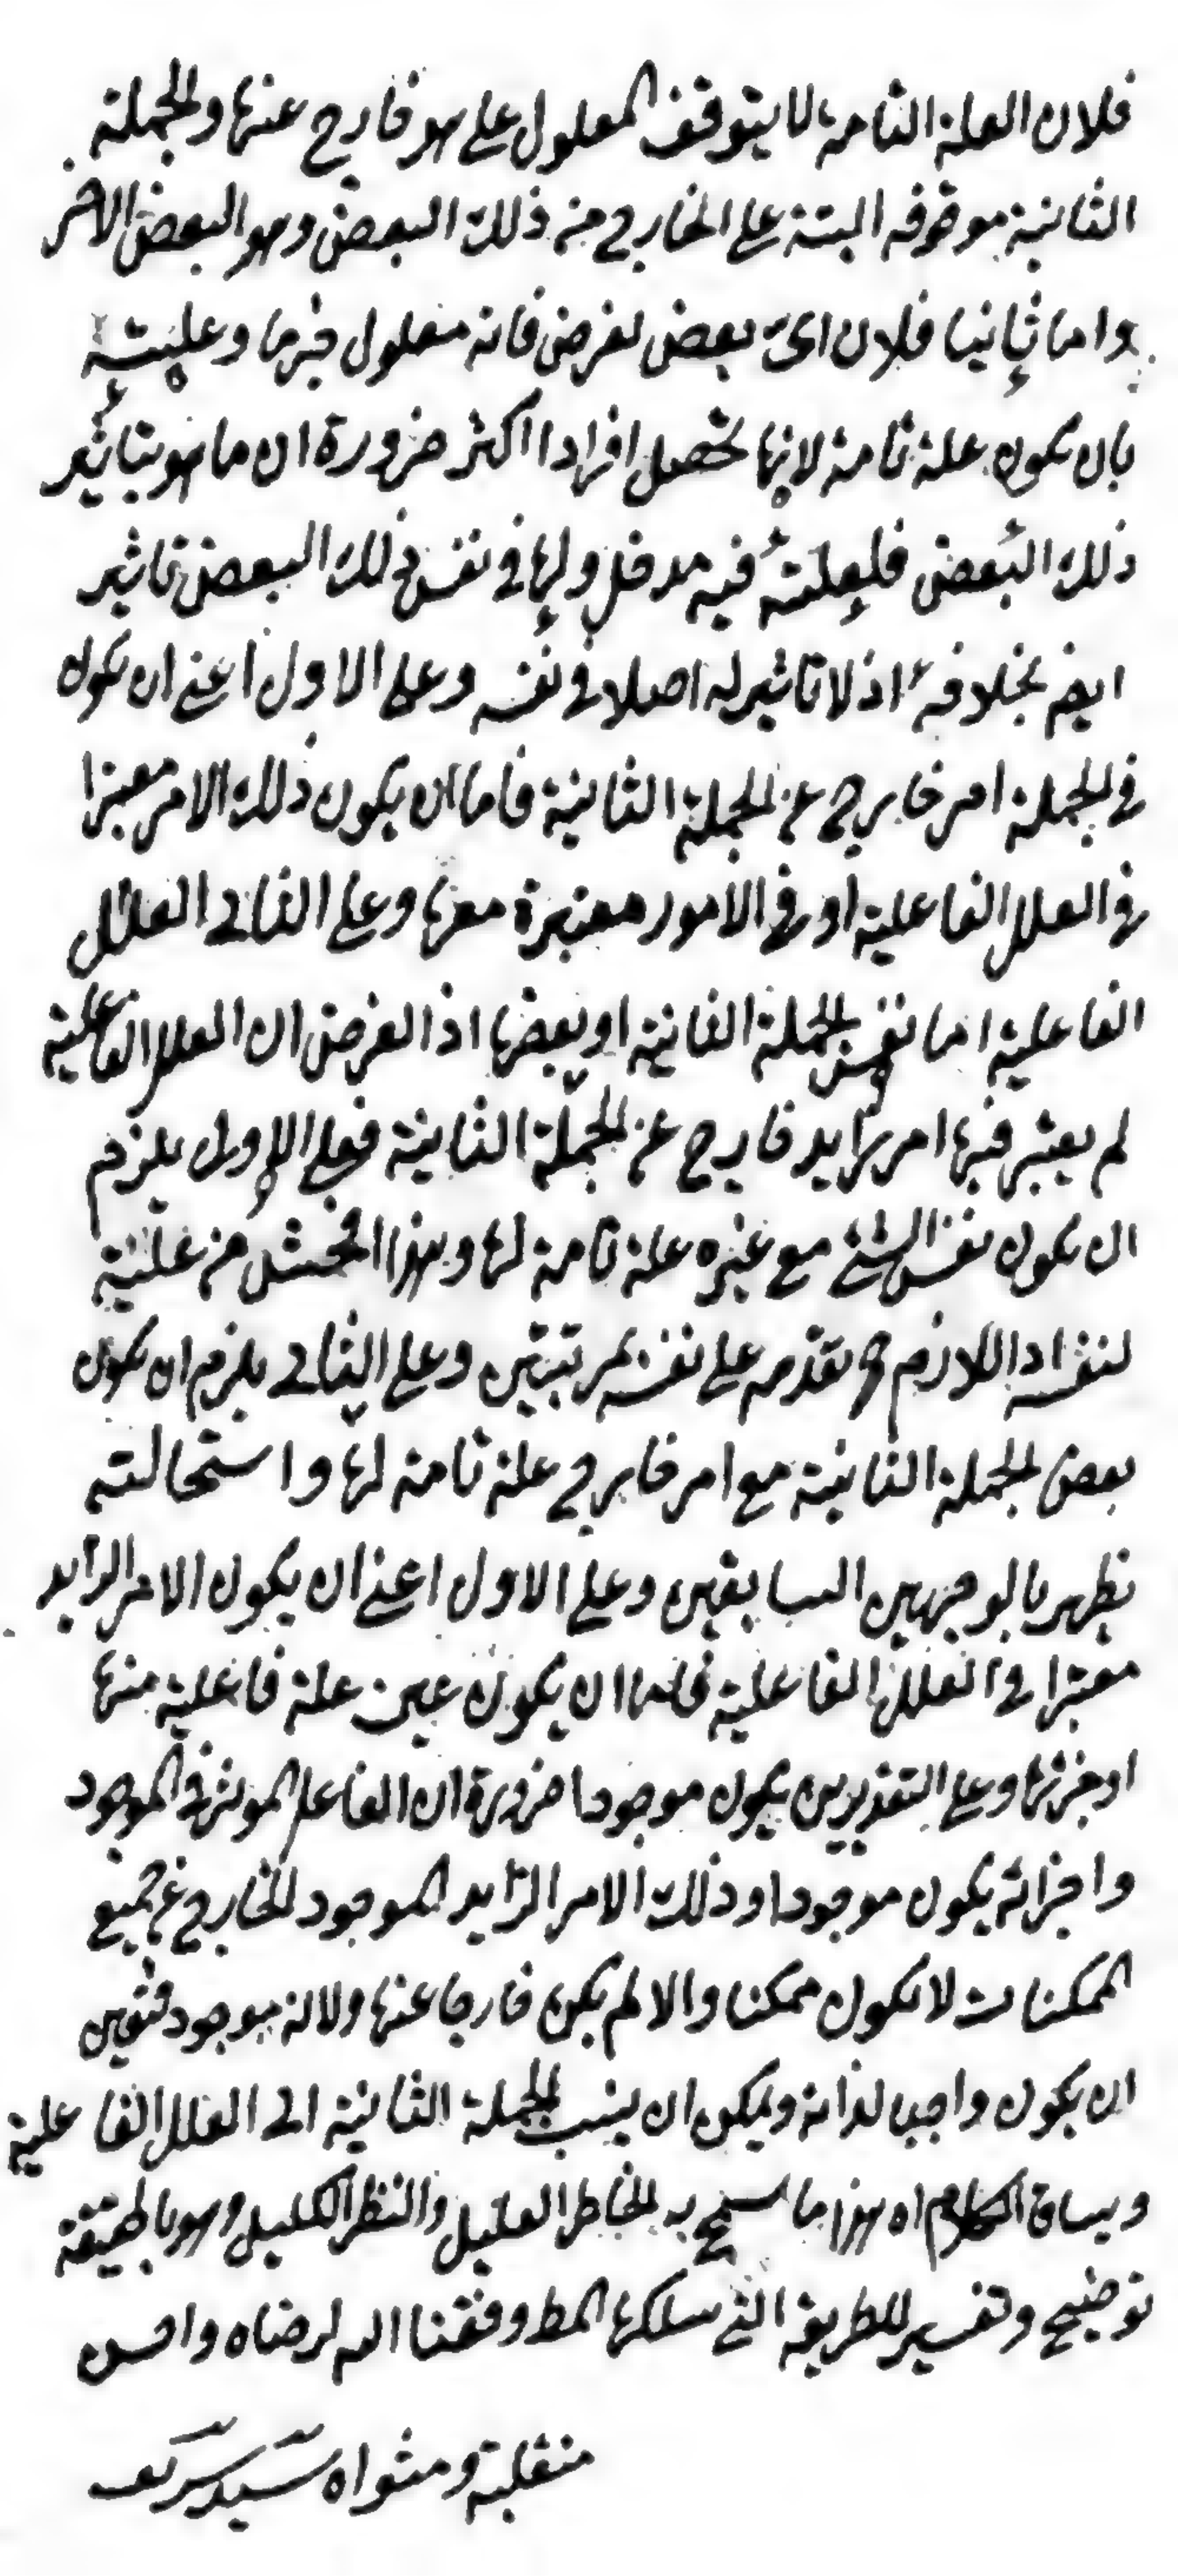 فلان العلة التامة لا يتوقف المعلول على هو خارج عنها والجملة
الثانية موقوفه البتة على الخارج من ذلك البعض وهو البعض الاخر
واما ثانيا فلان اى بعض يفرض فانه معلول جزءها وعليته
بان يكون علة تامة لانها تحصل افرادا اكثر ضرورة ان ما هو بتاثير
ذلك البعض فلعلته فيه مدخل ولها فى نفس ذلك البعض تاثير
ايضا بخلافه اذ لا تاثير له اصلا فى نفسه وعلى الاول اعنى ان يكون
فى الجملة امر خارج عن الجملة الثانية فاما ان يكون ذلك الامر معتبرا
فى العلل الفاعلية او فى الامور معتبرة معها وعلى الثانى العلل
الفاعلية اما نفس الجملة الثانية او بعضها اذ الفرض ان العلل الفاعلية
لم يعتبر فيها امر زايد خارج عن الجملة الثانية فعلى الاول يلزم
ان يكون نفس الشئ مع غيره علة تامة لها وبهذا افحش من علية
لنفسه اذ اللازم ح تقدمه على نفسه بمرتبتين وعلى الثانى يلزم ان يكون
بعض الجملة الثانية مع امر خارج علة تامة لها واستحالته
تظهر بالوجهين السابقين وعلى الاول اعنى ان يكون الامر الزايد
معتبرا فى العلل الفاعلية فاما ان يكون عين علة فاعلية منها
او جزئها وعلى التقديرين يكون موجودا ضرورة ان الفاعل الموثر فى الموجود
واجزائه يكون موجودا وذلك الامر الزايد الموجود الخارج عن جميع
الممكنات لا يكون ممكنا والا لم يكن خارجا عنها ولانه موجود فتعين
ان يكون واجبا لذاته ويمكن ان ينسب الجملة الثانية الى العلل الفاعلية
ويساق الكلام اه هذا ما سمح به الخاطر العليل والنظر الكليل وهو بالحقيقة
توضيح وتفسير للطريقة التى سلكها المط وفقنا الله لرضاه واحسن
منقلبة ومثواه سيد شريف